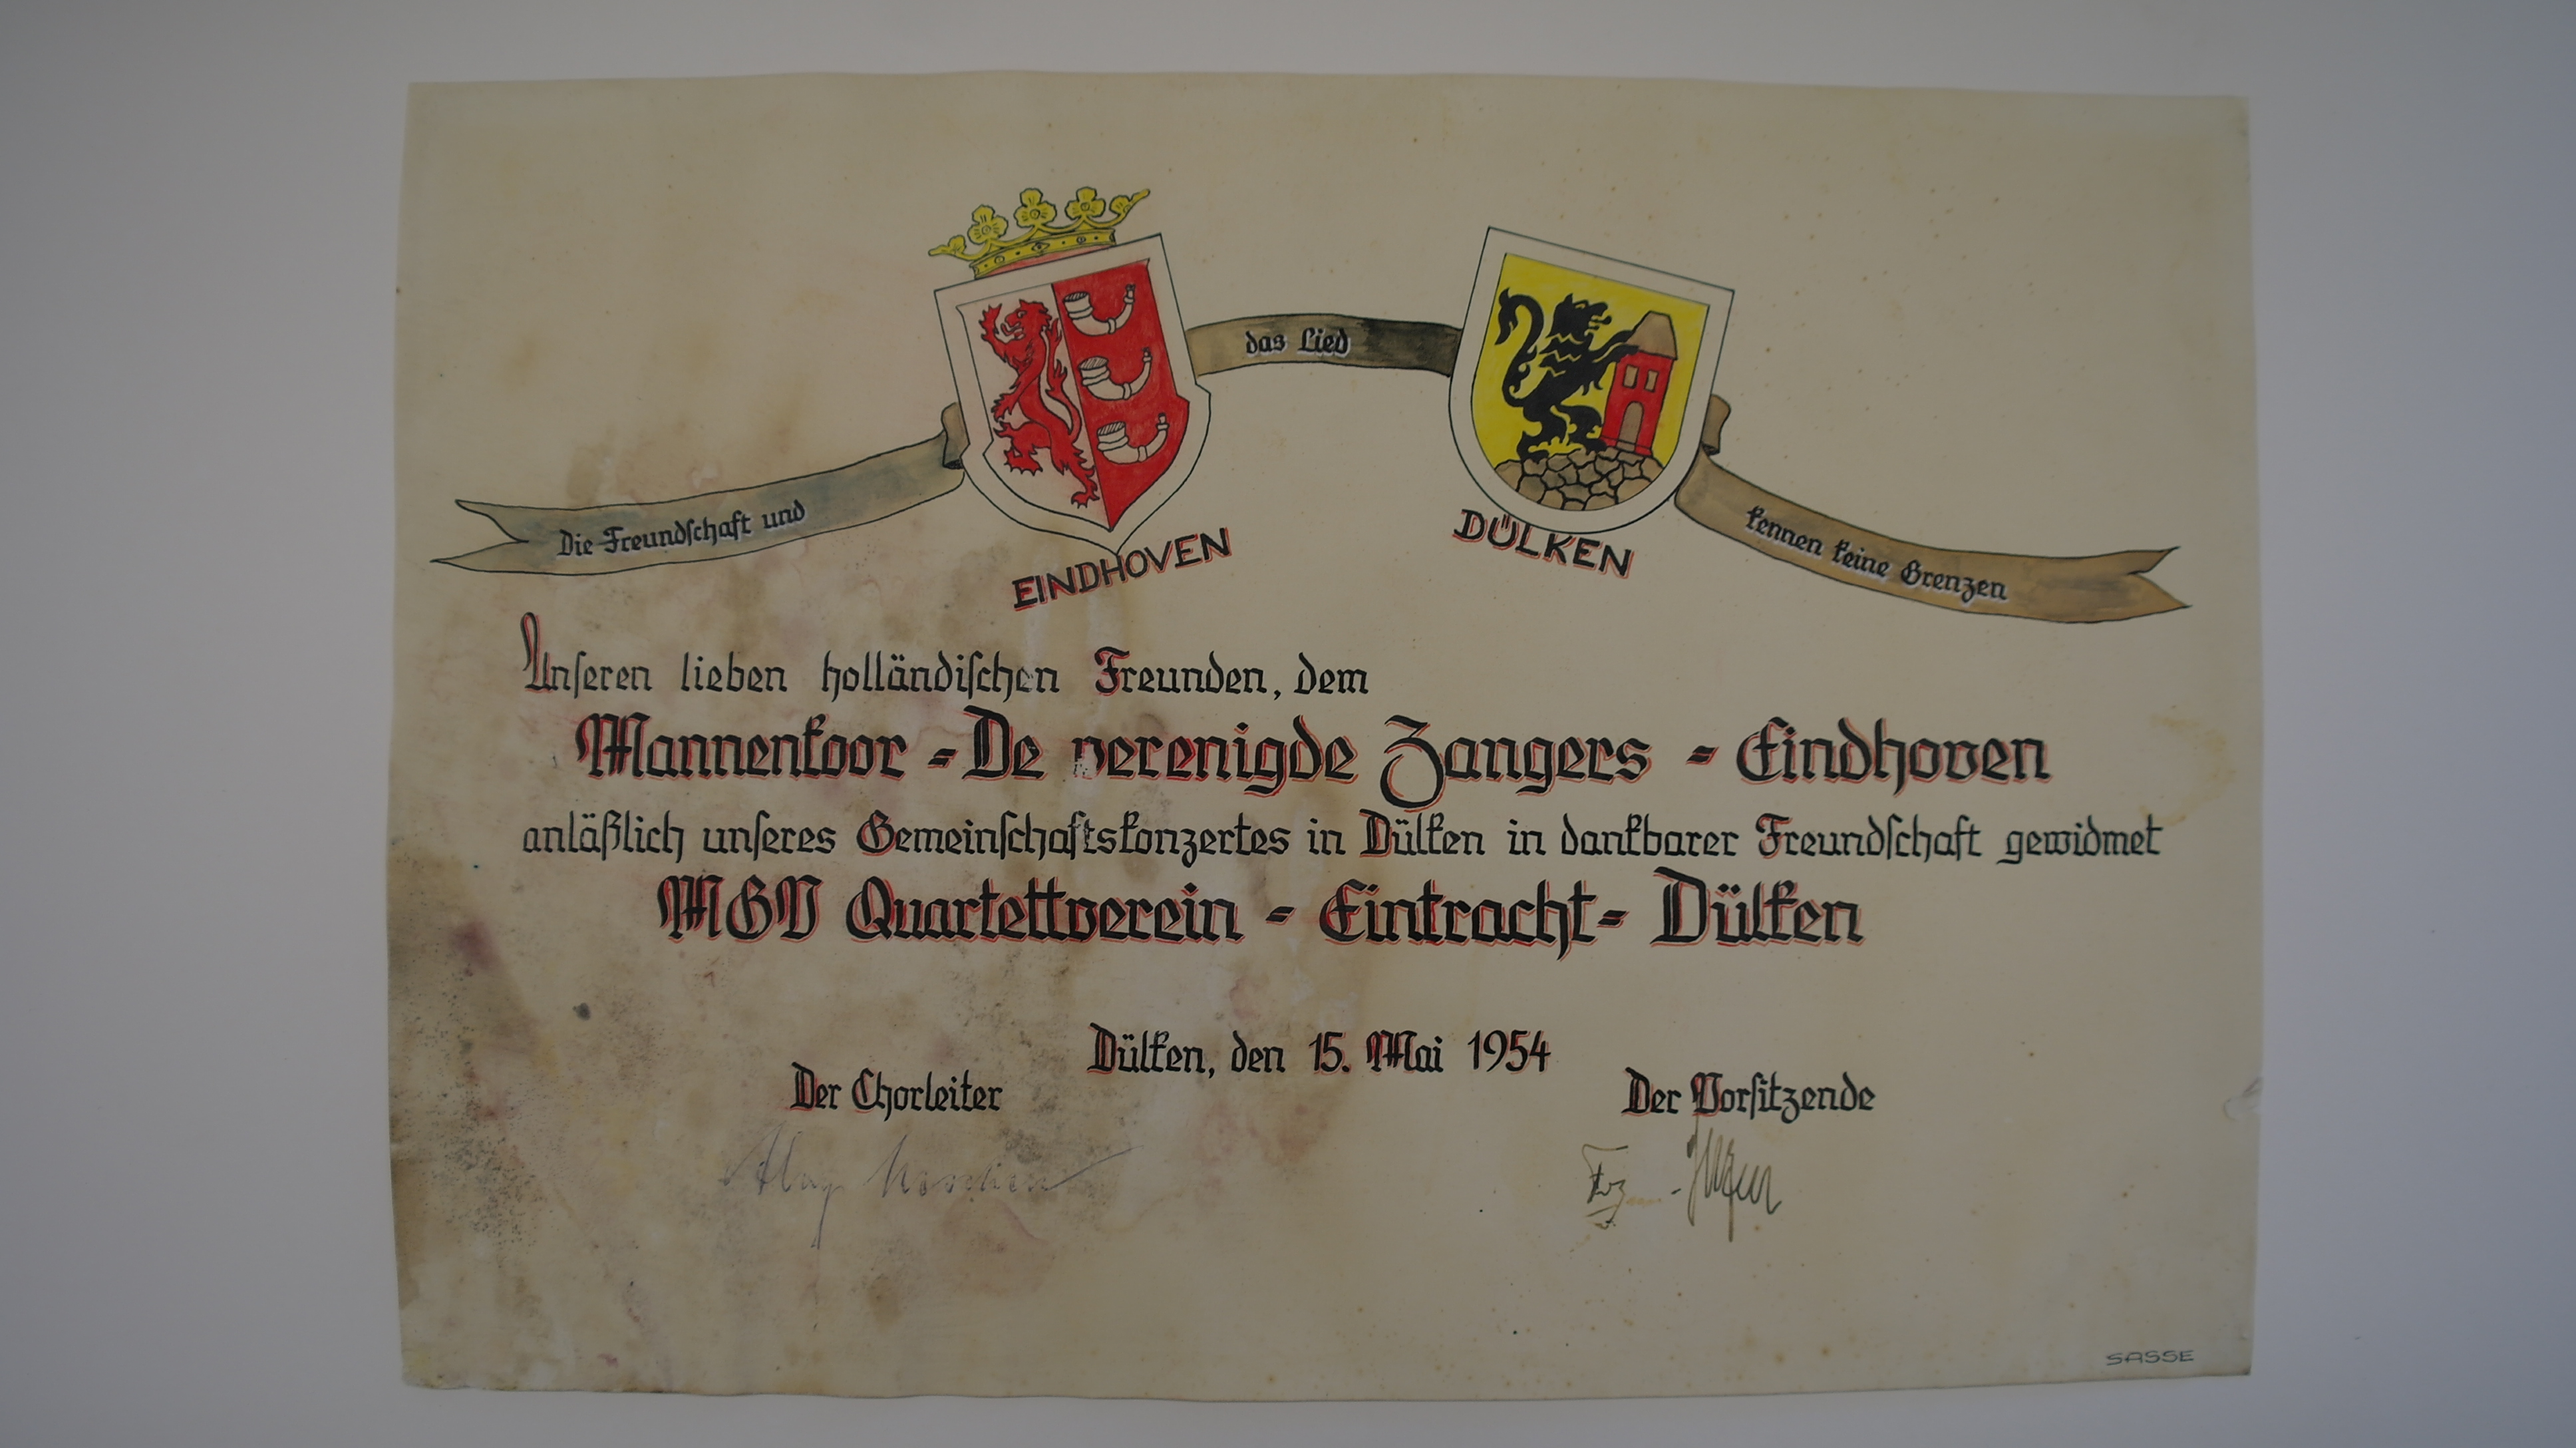 Die Freundschaft und das Lied kennen keine Grenzen
EINDHOVEN
DÜLKEN
Unseren lieben holländischen Freunden, dem
Mannenkoor - De verenigde Zangers - Eindhoven
anläßlich unseres Gemeinschaftskonzertes in Dülken in dankbarer Freundschaft gewidmet
MGV Quartettverein - Eintracht - Dülken
Dülken, den 15. Mai 1954
Der Chorleiter
Der Vorsitzende
SASSE